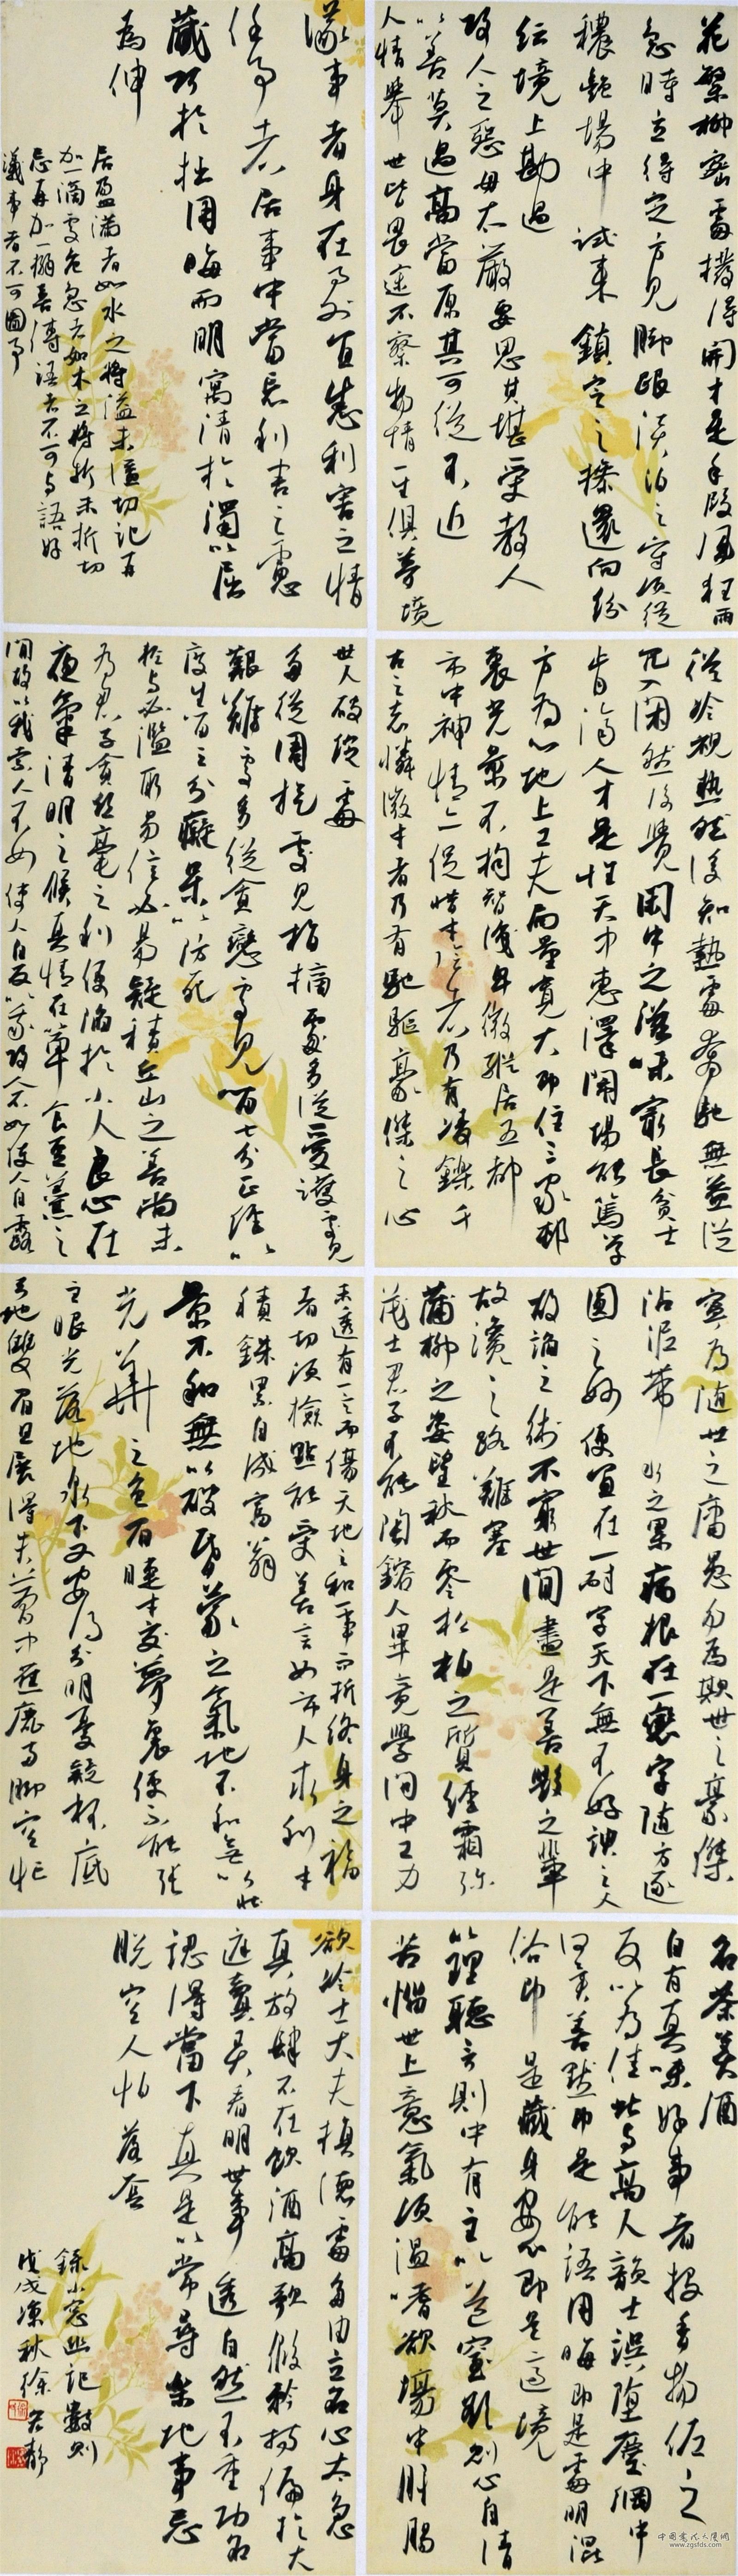 花繁柳密處撥得開才是手段風狂雨
急時立得定方見腳跟淡泊之守須從
穠艷場中試來鎮定之操還向紛
紜境上勘過
攻人之惡毋太嚴要思其堪受教人
以善莫過高當原其可從不近
人情舉世皆畏途不察物情一生俱夢境
議事者身在事外宜悉利害之情
任事者居事中當忘利害之慮
藏巧於拙用晦而明寓清於濁以屈
為伸
居盈滿者如水之將溢未溢切記再
加一滴處危急者如木之將折未折切
忌再加一搦喜傳語者不可與語好
議事者不可圖事
從冷視熱然後知熱處奔馳無益從
冗入閑然後覺閑中之滋味最長貧士
肯濟人才是性天中惠澤鬧場能篤學
方為心地上工夫局量寬大即住三家村
裏光景不拘智識卑微縱居五都
市中神情亦促惜寸陰者乃有凌鑠千
古之志憐微才者乃有馳驅豪傑之心
世人破綻處
多從周旋處見指摘處多從愛護處見
艱難處多從貪戀處見留七分正經以
度生留三分癡呆以防死
輕與必濫取易信必易疑積丘山之善尚未
為君子貪絲毫之利便陷於小人良心在
夜氣清明之候真情在簞食豆羹之
間故以我索人不如使人自反以我攻人不如使人自露
寧為隨世之庸愚勿為欺世之豪傑
沾泥帶水之累病根在一戀字隨方逐
圓之妙便宜在一耐字天下無不好諛之人
故諂之術不窮世間盡是善毀之輩
故讒之路難塞
蒲柳之姿望秋而零松柏之質經霜彌
茂士君子不能陶鎔人畢竟學問中工力
未透有一言而傷天地之和一事而折終身之福
者切須檢點能受善言如市人求利寸
積銖累自成富翁
景不和無以破昏蒙之氣地不和無以壯
光華之色眉睫才交夢裏便不能張
主眼光落地泉下又安得分明憂疑杯底
弓蛇雙眉且展得失夢中蕉鹿兩腳空忙
名茶美酒
自有真味好事者投香物佐之
反以為佳此與高人韻士誤墮塵網中
何異善默即是能語用晦即是處明混
俗即是藏身安心即是適境
以理聽言則中有主以道窒欲則心自清
苦惱世上意氣須溫嗜欲場中肝腸
欲冷士大夫損德處多由立名心太急
真放肆不在飲酒高歌假矜持偏於大
庭賣弄看明世事透自然不重功名
認得當下真是以常尋樂地事忌
脫空人怕落套
錄小窗幽記數則
戊戌涼秋徐君靜
www.zgsfds.com